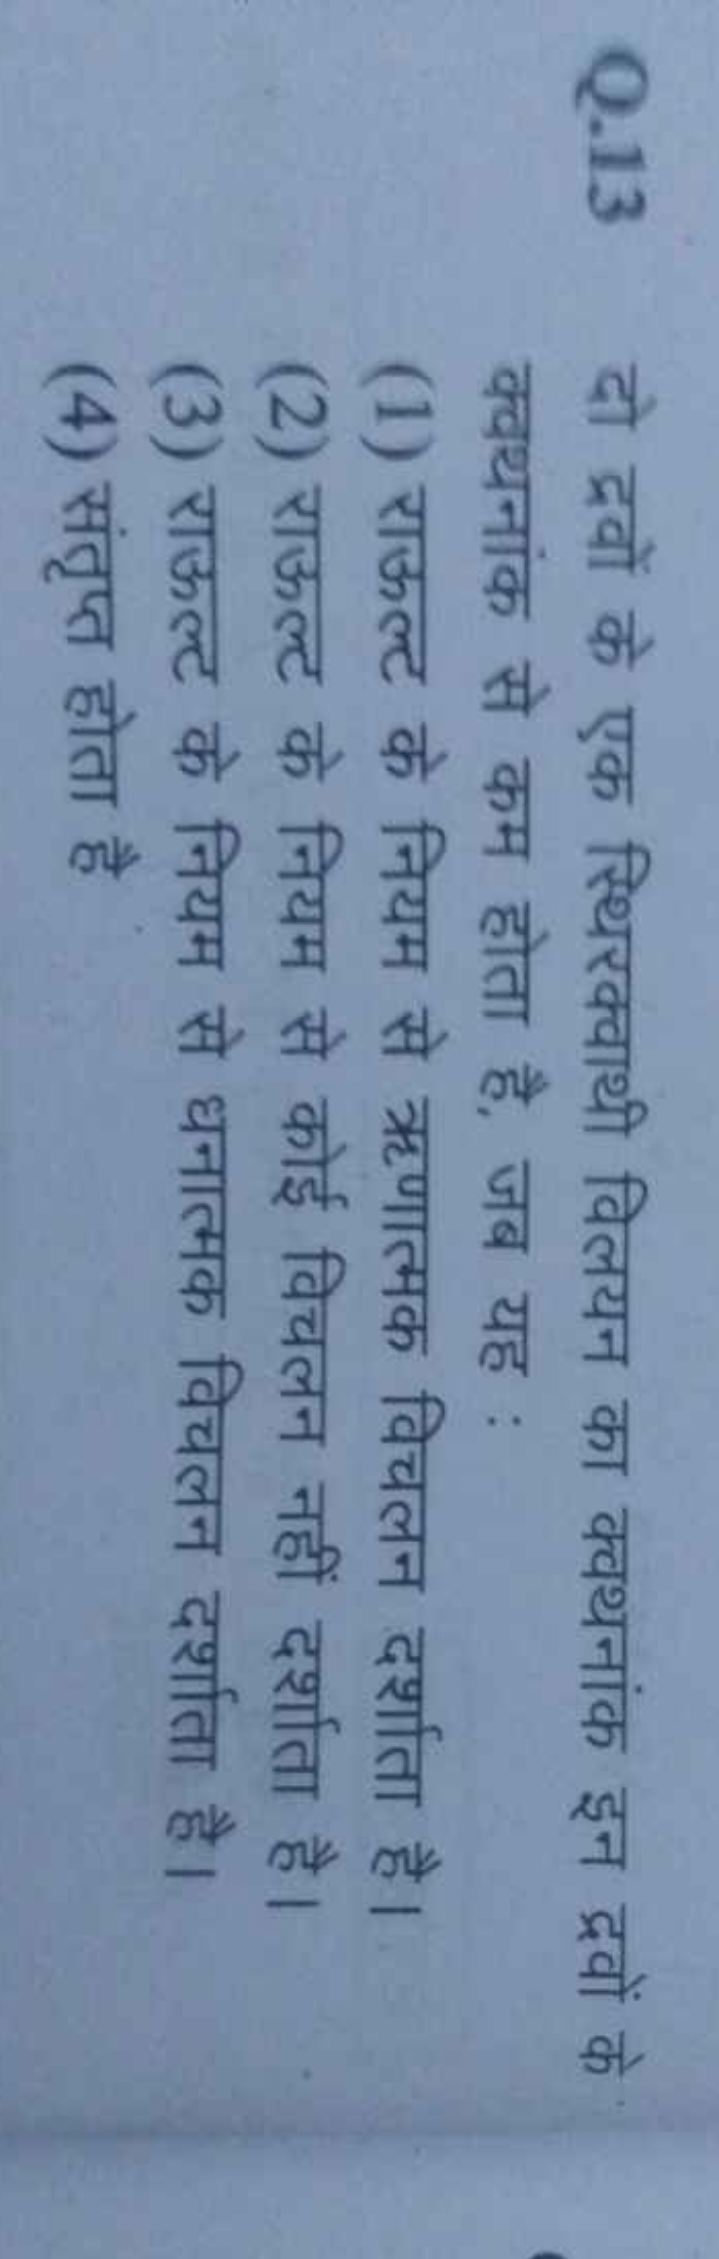 Q.13 दो द्रवों के एक स्थिरक्वाथी विलयन का क्वथनांक इन द्रवों के
क्वथनांक से कम होता है, जब यह :
(1) राऊल्ट के नियम से ऋणात्मक विचलन दर्शाता है।
(2) राऊल्ट के नियम से कोई विचलन नहीं दर्शाता है।
(3) राऊल्ट के नियम से धनात्मक विचलन दर्शाता है।
(4) संतृप्त होता है